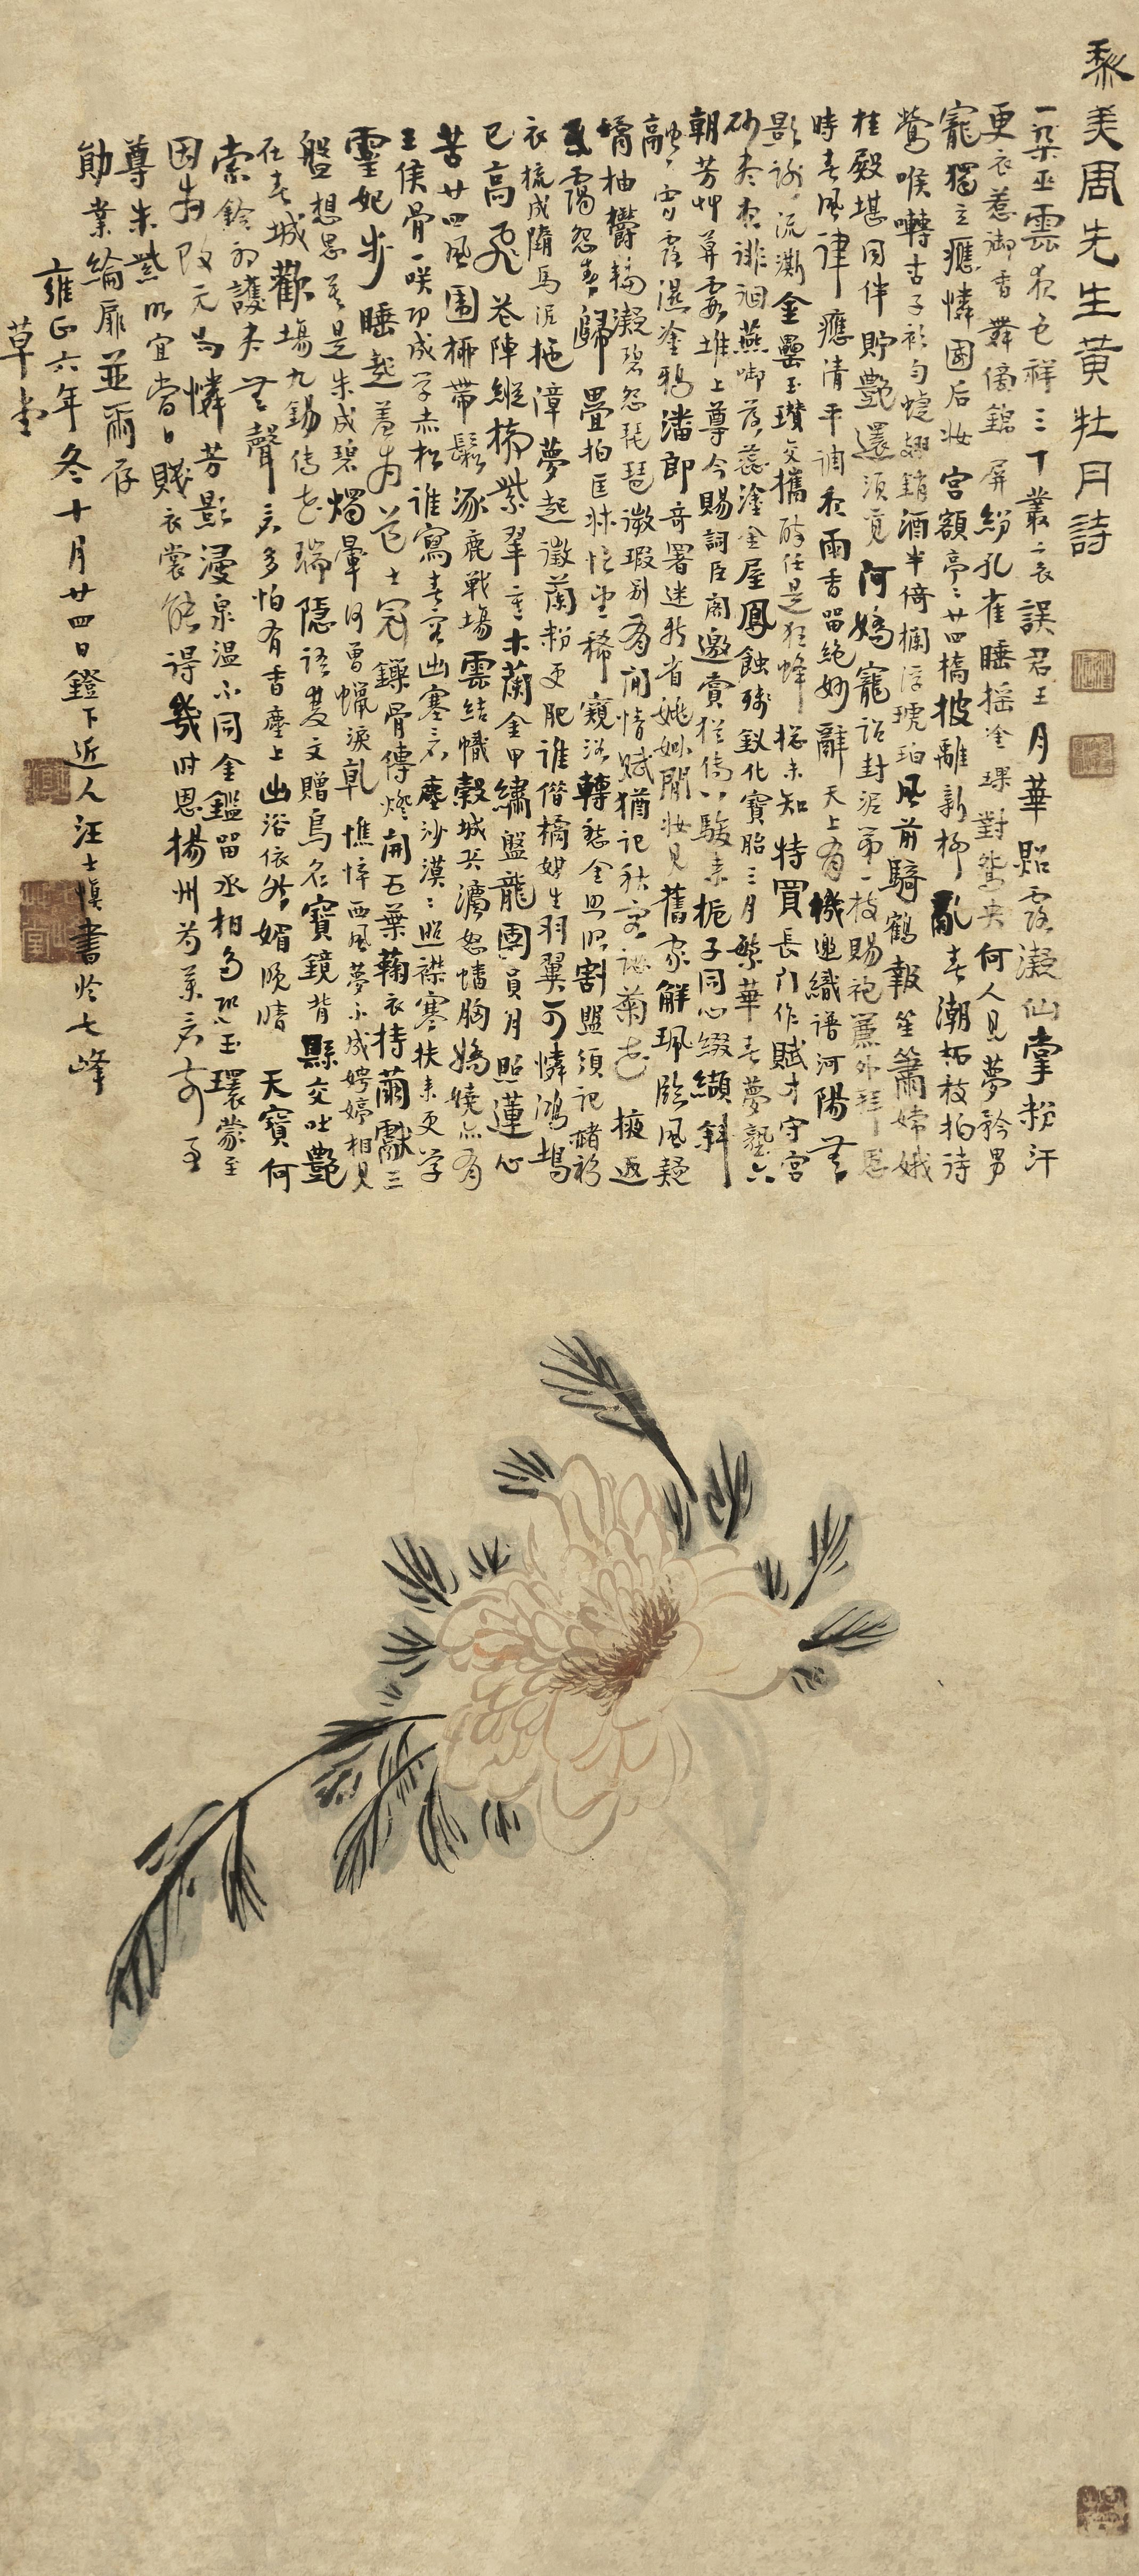 黎美周先生黄牡丹詩
一朶巫雲夜色祥三千叢裏誤君王月華照露凝仙掌粉汗
更衣惹御香舞傍錦屏紛孔雀睡搖金瑣對鴛央何人見夢矜男
寵獨立應憐國后妝宮額亭亭廿四橋披離新柳亂春潮柘枝拍待
鶯喉囀杏子衫勻蝶翅銷酒半倚欄浮琥珀風前騎鶴報笙簫嫦娥
桂殿堪同伴貯艷還須覓阿嬌寵詔封泥第一枝賜袍簾外拜恩
時春風律應清平調夜雨香留絶妙辭天上有機邀織譜河陽無
影謝流澌金罍玉瓚交攜醉任是狂蜂總未知特買長門作賦才守宮
砂盡夜徘徊燕啣落蕊塗金屋鳳蝕殘釵化寶胎三月繁華春夢熟六
朝芳艸葬雲堆上尊今賜詞臣閣邀賞猶傳八駿來梔子同心綴纈斜
融霄露濕塗鴉潘郎奇署迷新省姚姒閒妝見舊家解珮臨風疑
橘柚鬱轓凝碧怨琵琶微瑕別有閒情賦猶記秋容詠菊花掖返
靄怨春歸疊拍匡牀悵望稀窺浴轉愁金照眼割盟須記赭衫
衣梳成隋馬泥拖漳夢起徵蘭粉更肥誰偕橘媒生羽翼可憐鴻鵠
已高飛卷陣縱橫紫翠重木蘭金甲繡盤龍團員月照蓮心
苦廿四風圍柳帶鬆涿鹿戰場雲結幟穀城兵瀵怒蟠胸嬌嬈亦有
王侯骨一咲功成学赤松誰寫春容出塞來塵沙漠漠照襟寒扶來更学
靈妃步睡起羞為道士冠鑠骨傳燈開五葉鞠衣持繭獻三
盤想思莫是朱成碧燭暈何曾蠟淚乹憔悴西風夢不成娉婷相見
在春城歡場九錫傳花瑞隱語雙文贈鳥名寶鏡背縣交吐艷
索鈴初護未無聲衣多怕有香塵上出浴依然媚晚晴天寶何
因為改元為憐芳影漫泉温不同金鑑留丞相為恐玉環蒙至
尊朱紫眀宜當日賤衣裳能得幾時恩揚州芍藥來前至
勛業綸扉並爾存
雍正六年冬十月廿四日鐙下近人汪士慎書於七峰
草堂